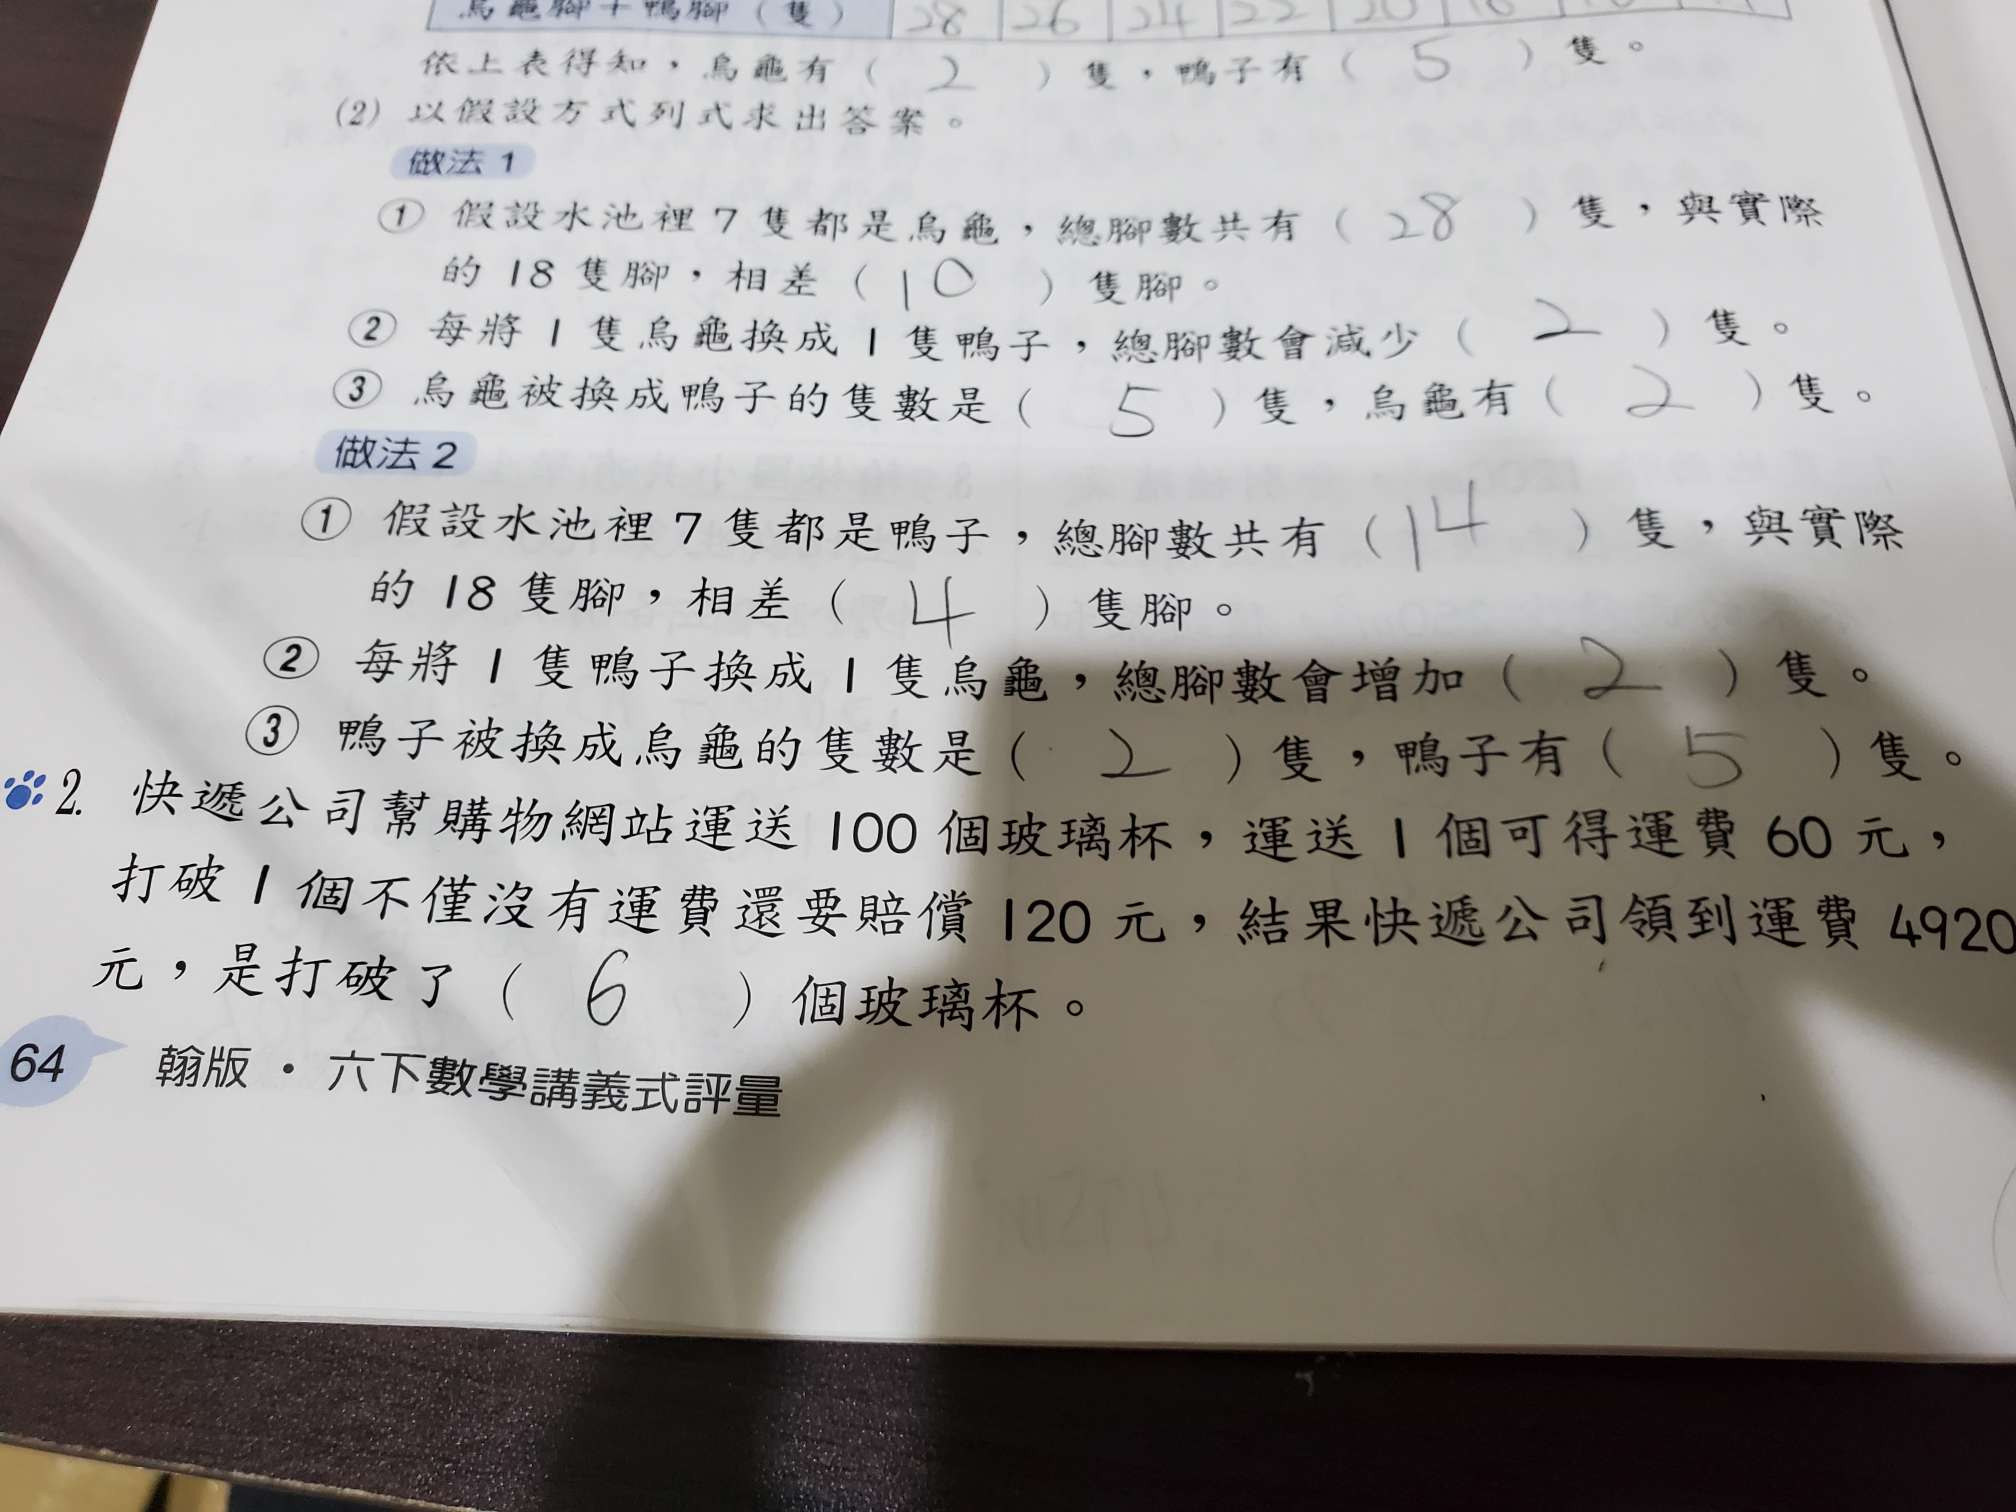 烏龜腳+鴨腳（隻） 28 26 24 22 20
依上表得知，烏龜有（ 2 ）隻，鴨子有（ 5 ）隻。
(2) 以假設方式列式求出答案。
做法 1
① 假設水池裡 7 隻都是烏龜，總腳數共有（ 28 ）隻，與實際
的 18 隻腳，相差（ 10 ）隻腳。
② 每將 1 隻烏龜換成 1 隻鴨子，總腳數會減少（ 2 ）隻。
③ 烏龜被換成鴨子的隻數是（ 5 ）隻，烏龜有（ 2 ）隻。
做法 2
① 假設水池裡 7 隻都是鴨子，總腳數共有（ 14 ）隻，與實際
的 18 隻腳，相差（ 4 ）隻腳。
② 每將 1 隻鴨子換成 1 隻烏龜，總腳數會增加（ 2 ）隻。
③ 鴨子被換成烏龜的隻數是（ 2 ）隻，鴨子有（ 5 ）隻。
2. 快遞公司幫購物網站運送 100 個玻璃杯，運送 1 個可得運費 60 元，
打破 1 個不僅沒有運費還要賠償 120 元，結果快遞公司領到運費 4920
元，是打破了（ 6 ）個玻璃杯。
64 翰版・六下數學講義式評量